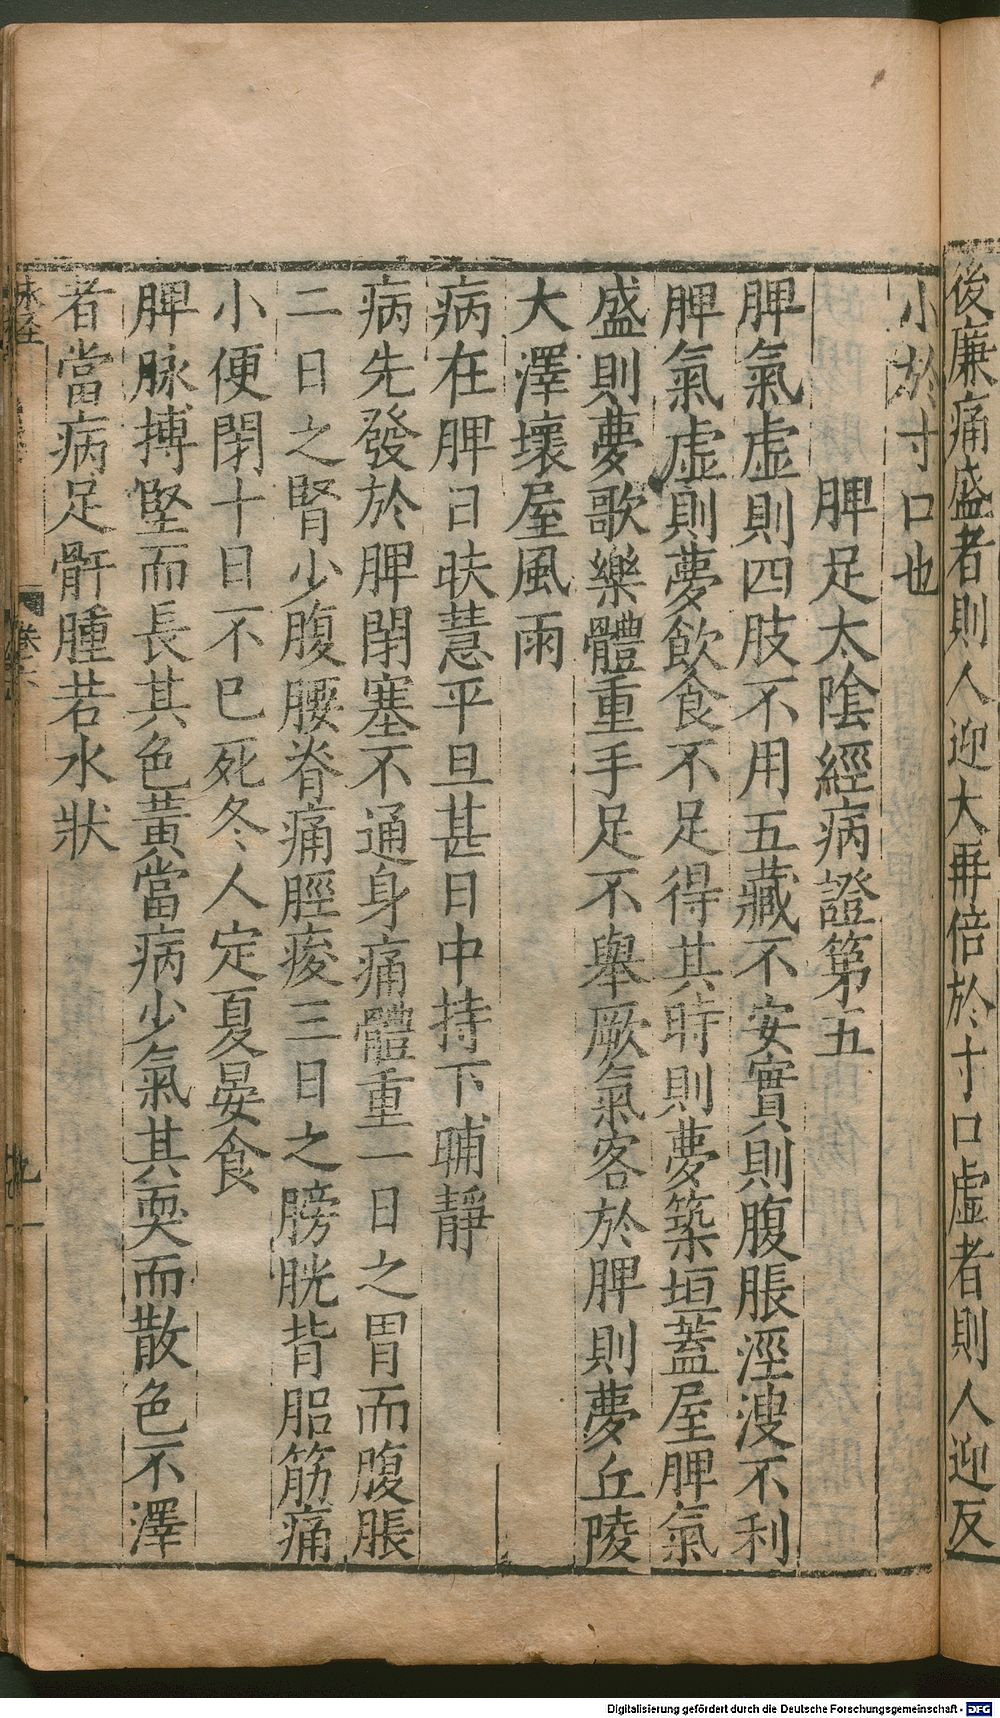 後廉痛盛者則人迎大再倍於寸口虛者則人迎反
小於寸口也
脾足太陰經病證第五
脾氣虛則四肢不用五藏不安實則腹脹涇溲不利
脾氣虛則夢飲食不足得其時則夢築垣蓋屋脾氣
盛則夢歌樂體重手足不舉厥氣客於脾則夢丘陵
大澤壞屋風雨
病在脾日昳慧平旦甚日中持下晡靜
病先發於脾閉塞不通身痛體重一日之胃而腹脹
二日之腎少腹腰脊痛脛痠三日之膀胱背䏚筋痛
小便閉十日不已死冬人定夏晏食
脾脉搏堅而長其色黃當病少氣其耎而散色不澤
者當病足骭腫若水狀
脉經
卷六
九
Digitalisierung gefördert durch die Deutsche Forschungsgemeinschaft - DFG